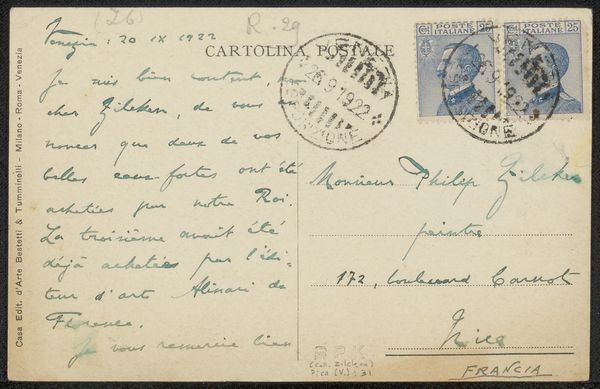 (26)
R. 29
Venezia: 20 IX 1922
CARTOLINA POSTALE
Je suis bien content mon
cher Zilcken, de vous an
noncer que deux de vos
belles eaux-fortes ont été
achetées par notre Roi.
La troisième avait été
déjà achetée par l'édi-
teur d'art Alinari de
Florence.
Je vous remercie bien
Casa Edit. d'Arte Bestetti & Tumminelli - Milano - Roma - Venezia
26.9.1922
POSTE ITALIANE
25
POSTE ITALIANE
25
26.9.1922
Monsieur Philip Zilcken
peintre
172, boulevard Carnot
Nice
FRANCIA
(coll. Zilcken)
Pica (V.) : 31